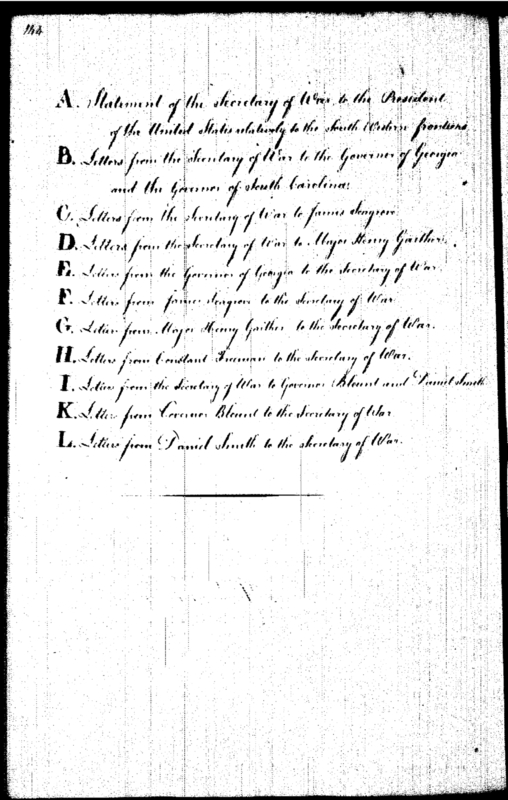 144
A. Statement of the Secretary of War to the President
of the United States relatively to the South Western frontiers.
B. Letters from the Secretary of War to the Governor of Georgia
and the Governor of South Carolina.
C. Letters from the Secretary of War to James Seagrove
D. Letters from the Secretary of War to Major Henry Gaither.
E. Letters from the Governor of Georgia to the Secretary of War.
F. Letters from James Seagrove to the Secretary of War
G. Letters from Major Henry Gaither to the Secretary of War.
H. Letters from Constant Freeman to the Secretary of War.
I. Letters from the Secretary of War to Governor Blount and Daniel Smith
K. Letters from Governor Blount to the Secretary of War
L. Letters from Daniel Smith to the Secretary of War.